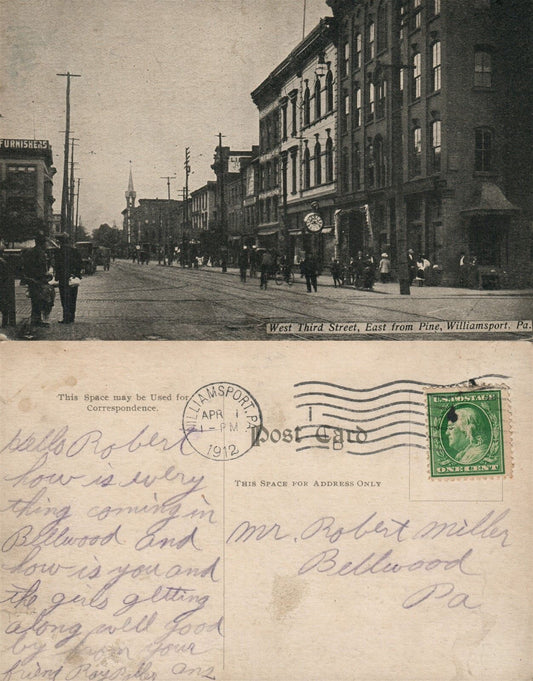 FURNISHERS
West Third Street, East from Pine, Williamsport, Pa.
This Space may be Used for
Correspondence.
WILLIAMSPORT, PA.
APR 1
1-PM
1912
Post Card
U.S. POSTAGE
ONE CENT
THIS SPACE FOR ADDRESS ONLY
Hello Robert
how is every
thing coming in
Bellwood and
how is you and
the girls getting
along well good
by from your
friend Roy
Mr. Robert Miller
Bellwood
Pa